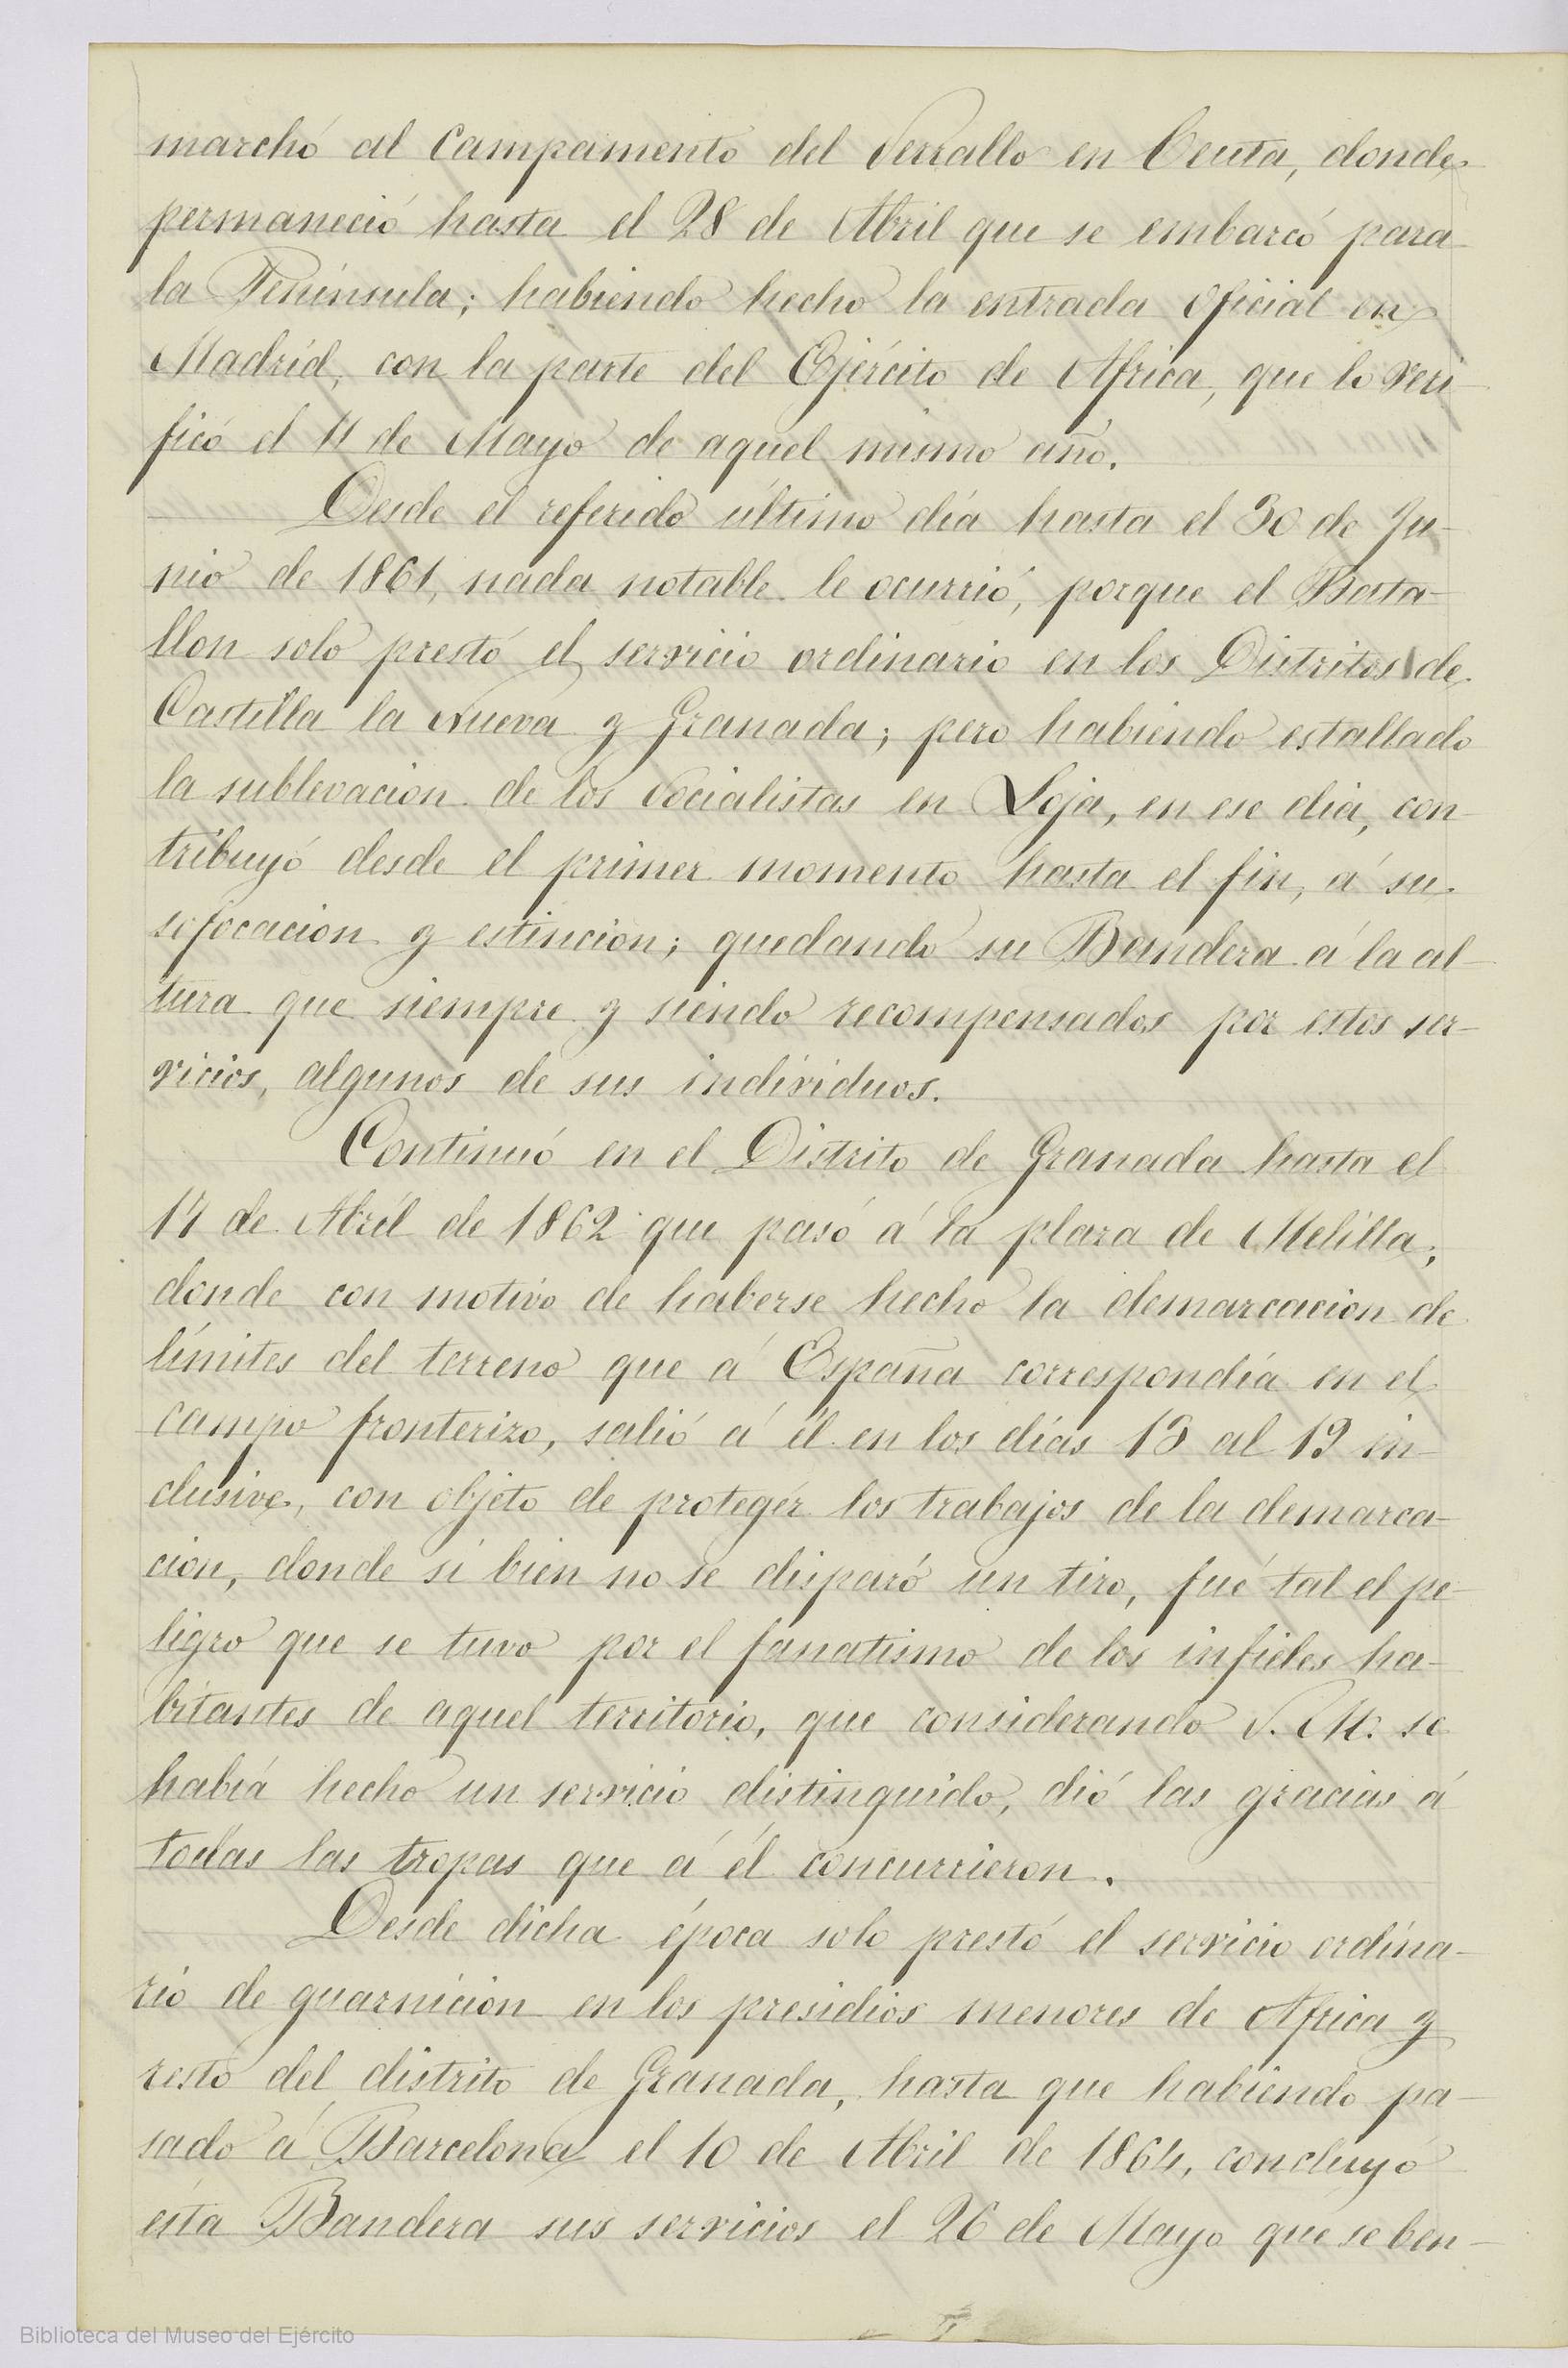 marchó al Campamento del Serrallo en Ceuta, donde
permaneció hasta el 28 de Abril que se embarcó para
la Península; habiendo hecho la entrada oficial en
Madrid, con la parte del Ejército de Africa, que lo veri
ficó el 11 de Mayo de aquel mismo año.
Desde el referido último día hasta el 30 de Ju-
nio de 1861, nada notable le ocurrió, porque el Bata-
llon solo prestó el servicio ordinario en los Distritos de
Castilla la Nueva y Granada; pero habiendo estallado
la sublevacion de los Socialistas en Loja, en ese dia, con
tribuyó desde el primer momento hasta el fin, á su
sofocacion y estincion; quedando su Bandera á la al-
tura que siempre y siendo recompensados por estos ser-
vicios, algunos de sus individuos.
Continuó en el Distrito de Granada hasta el
17 de Abril de 1862 que pasó á la plaza de Melilla;
donde con motivo de haberse hecho la demarcacion de
límites del terreno que á España correspondía en el
campo fronterizo, salió á él en los días 13 al 19 in-
clusive, con objeto de protegér los trabajos de la demarca-
cion, donde si bien no se disparó un tiro, fué tal el pe-
ligro que se tuvo por el fanatismo de los infieles ha-
bitantes de aquel territorio, que considerando S. M. se
habia hecho un servicio distinguido, dió las gracias á
todas las tropas que á él concurrieron.
Desde dicha época solo prestó el servicio ordina-
rio de guarnicion en los presidios menores de Africa y
resto del distrito de Granada, hasta que habiendo pa-
sado á Barcelona el 10 de Abril de 1864, concluyó
esta Bandera sus servicios el 26 de Mayo que se ben-
Biblioteca del Museo del Ejército